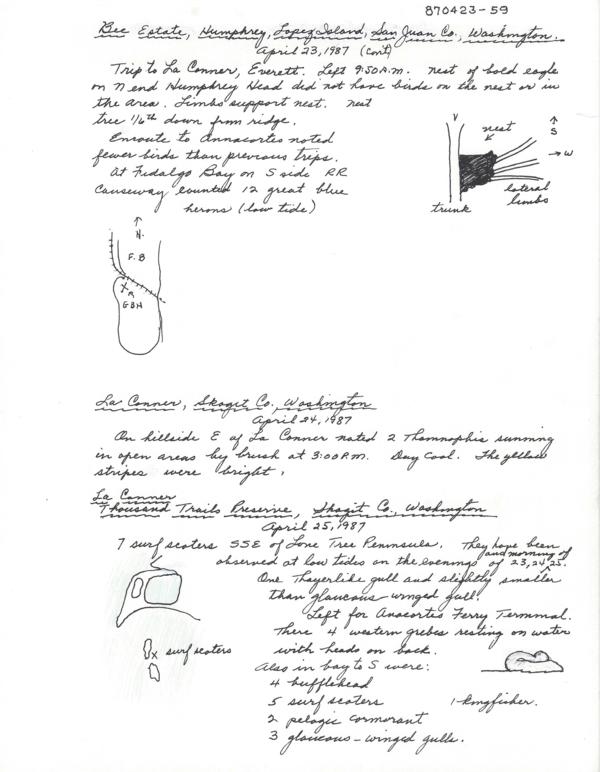 870423-59
Bee Estate, Humphrey, Lopez Island, San Juan Co., Washington.
April 23, 1987 (cont)
Trip to La Conner, Everett. Left 9:50 A.M. nest of bald eagle
on N end Humphrey Head did not have birds on the nest or in
the area. Limbs support nest. nest
tree 1/6th down from ridge.
Enroute to Annacortes noted
fewer birds than previous trips.
At Fidalgo Bay on S side RR
Causeway counted 12 great blue
herons (low tide)
nest
S
W
lateral
limbs
trunk
N.
F.B
X
R
GBH
La Conner, Skagit Co., Washington
April 24, 1987
On hillside E of La Conner noted 2 Thamnophis sunning
in open areas by brush at 3:00 P.M. Day cool. The yellow
stripes were bright.
La Conner
Thousand Trails Preserve, Skagit Co., Washington
April 25, 1987
7 surf scoters SSE of Lone Tree Peninsula. They have been
observed at low tides on the evenings and morning of of 23, 24, 25.
One Thayerlike gull and slightly smaller
than glaucous-winged gull.
Left for Anacortes Ferry Terminal.
There 4 western grebes resting on water
with heads on back.
x surf scoters
Also in bay to S were:
4 bufflehead
5 surf scoters 1-kingfisher.
2 pelagic cormorant
3 glaucous-winged gulls.